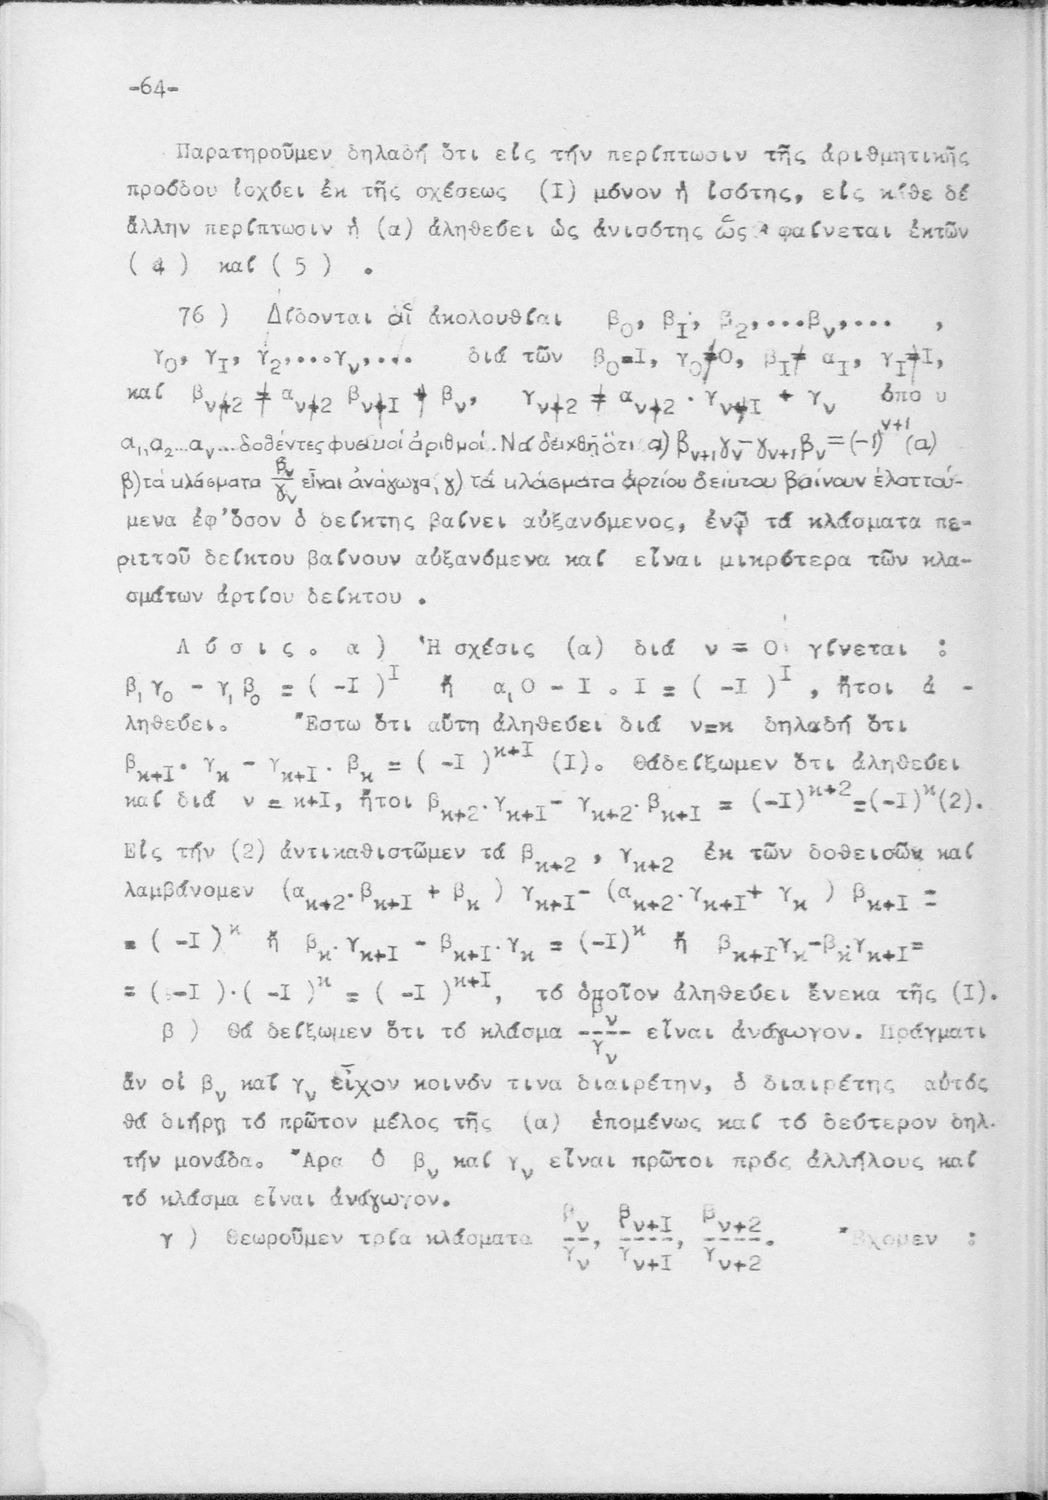 -64-
Παρατηροῦμεν δηλαδή ὅτι εἰς τήν περίπτωσιν τῆς ἀριθμητικῆς
προόδου ἰσχύει ἐκ τῆς σχέσεως (I) μόνον ἡ ἰσότης, εἰς κάθε δέ
ἄλλην περίπτωσιν ἡ (α) ἀληθεύει ὡς ἀνισότης ὥς φαίνεται ἐκτῶν
( 4 ) καί ( 5 ) .
76 ) Δίδονται αἱ ἀκολουθίαι β₀, β_I, β₂,...β_ν,... ,
γ₀, γ_I, γ₂,...γ_ν,... διά τῶν β₀=I, γ₀≠0, β_I≠ α_I, γ_I≠I,
καί β_ν+2 ≠ α_ν+2 β_ν+I + β_ν, γ_ν+2 ≠ α_ν+2 · γ_ν+I + γ_ν ὅπο υ
α₁,α₂...α_ν... δοθέντες φυσικοί ἀριθμοί. Νά δειχθῇ ὅτι α) β_ν+1 γ_ν - γ_ν+1 β_ν = (-1)^ν+1 (α)
β) τά κλάσματα β_ν/γ_ν εἶναι ἀνάγωγα, γ) τά κλάσματα ἀρτίου δείκτου βαίνουν ἐλαττού-
μενα ἐφ'ὅσον ὁ δείκτης βαίνει αὐξανόμενος, ἐνῷ τά κλάσματα πε-
ριττοῦ δείκτου βαίνουν αὐξανόμενα καί εἶναι μικρότερα τῶν κλα-
σμάτων ἀρτίου δείκτου .
Λ ύ σ ι ς . α ) Ἡ σχέσις (α) διά ν = 0 γίνεται :
β₁γ₀ - γ₁β₀ = ( -I )^I ἤ α₁0 - I . I = ( -I )^I , ἤτοι ἀ -
ληθεύει. Ἔστω ὅτι αὕτη ἀληθεύει διά ν=κ δηλαδή ὅτι
β_κ+I· γ_κ - γ_κ+I· β_κ = ( -I )^κ+I (I). Θάδείξωμεν ὅτι ἀληθεύει
καί διά ν = κ+I, ἤτοι β_κ+2·γ_κ+I- γ_κ+2·β_κ+I = (-I)^κ+2=(-I)^κ(2).
Εἰς τήν (2) ἀντικαθιστῶμεν τά β_κ+2 , γ_κ+2 ἐκ τῶν δοθεισῶν καί
λαμβάνομεν (α_κ+2·β_κ+I + β_κ ) γ_κ+I- (α_κ+2·γ_κ+I+ γ_κ ) β_κ+I =
= ( -I )^κ ἤ β_κ·γ_κ+I - β_κ+I·γ_κ = (-I)^κ ἤ β_κ+Iγ_κ-β_κ·γ_κ+I=
= ( -I )·( -I )^κ = ( -I )^κ+I, τό ὁποῖον ἀληθεύει ἕνεκα τῆς (I).
β ) Θά δείξωμεν ὅτι τό κλάσμα β_ν/γ_ν εἶναι ἀνάγωγον. Πράγματι
ἄν οἱ β_ν καί γ_ν εἶχον κοινόν τινα διαιρέτην, ὁ διαιρέτης αὐτός
θά διήρῃ τό πρῶτον μέλος τῆς (α) ἑπομένως καί τό δεύτερον δηλ.
τήν μονάδα. Ἄρα Ὁ β_ν καί γ_ν εἶναι πρῶτοι πρός ἀλλήλους καί
τό κλάσμα εἶναι ἀνάγωγον.
γ ) Θεωροῦμεν τρία κλάσματα β_ν/γ_ν, β_ν+I/γ_ν+I, β_ν+2/γ_ν+2. Ἔχομεν :